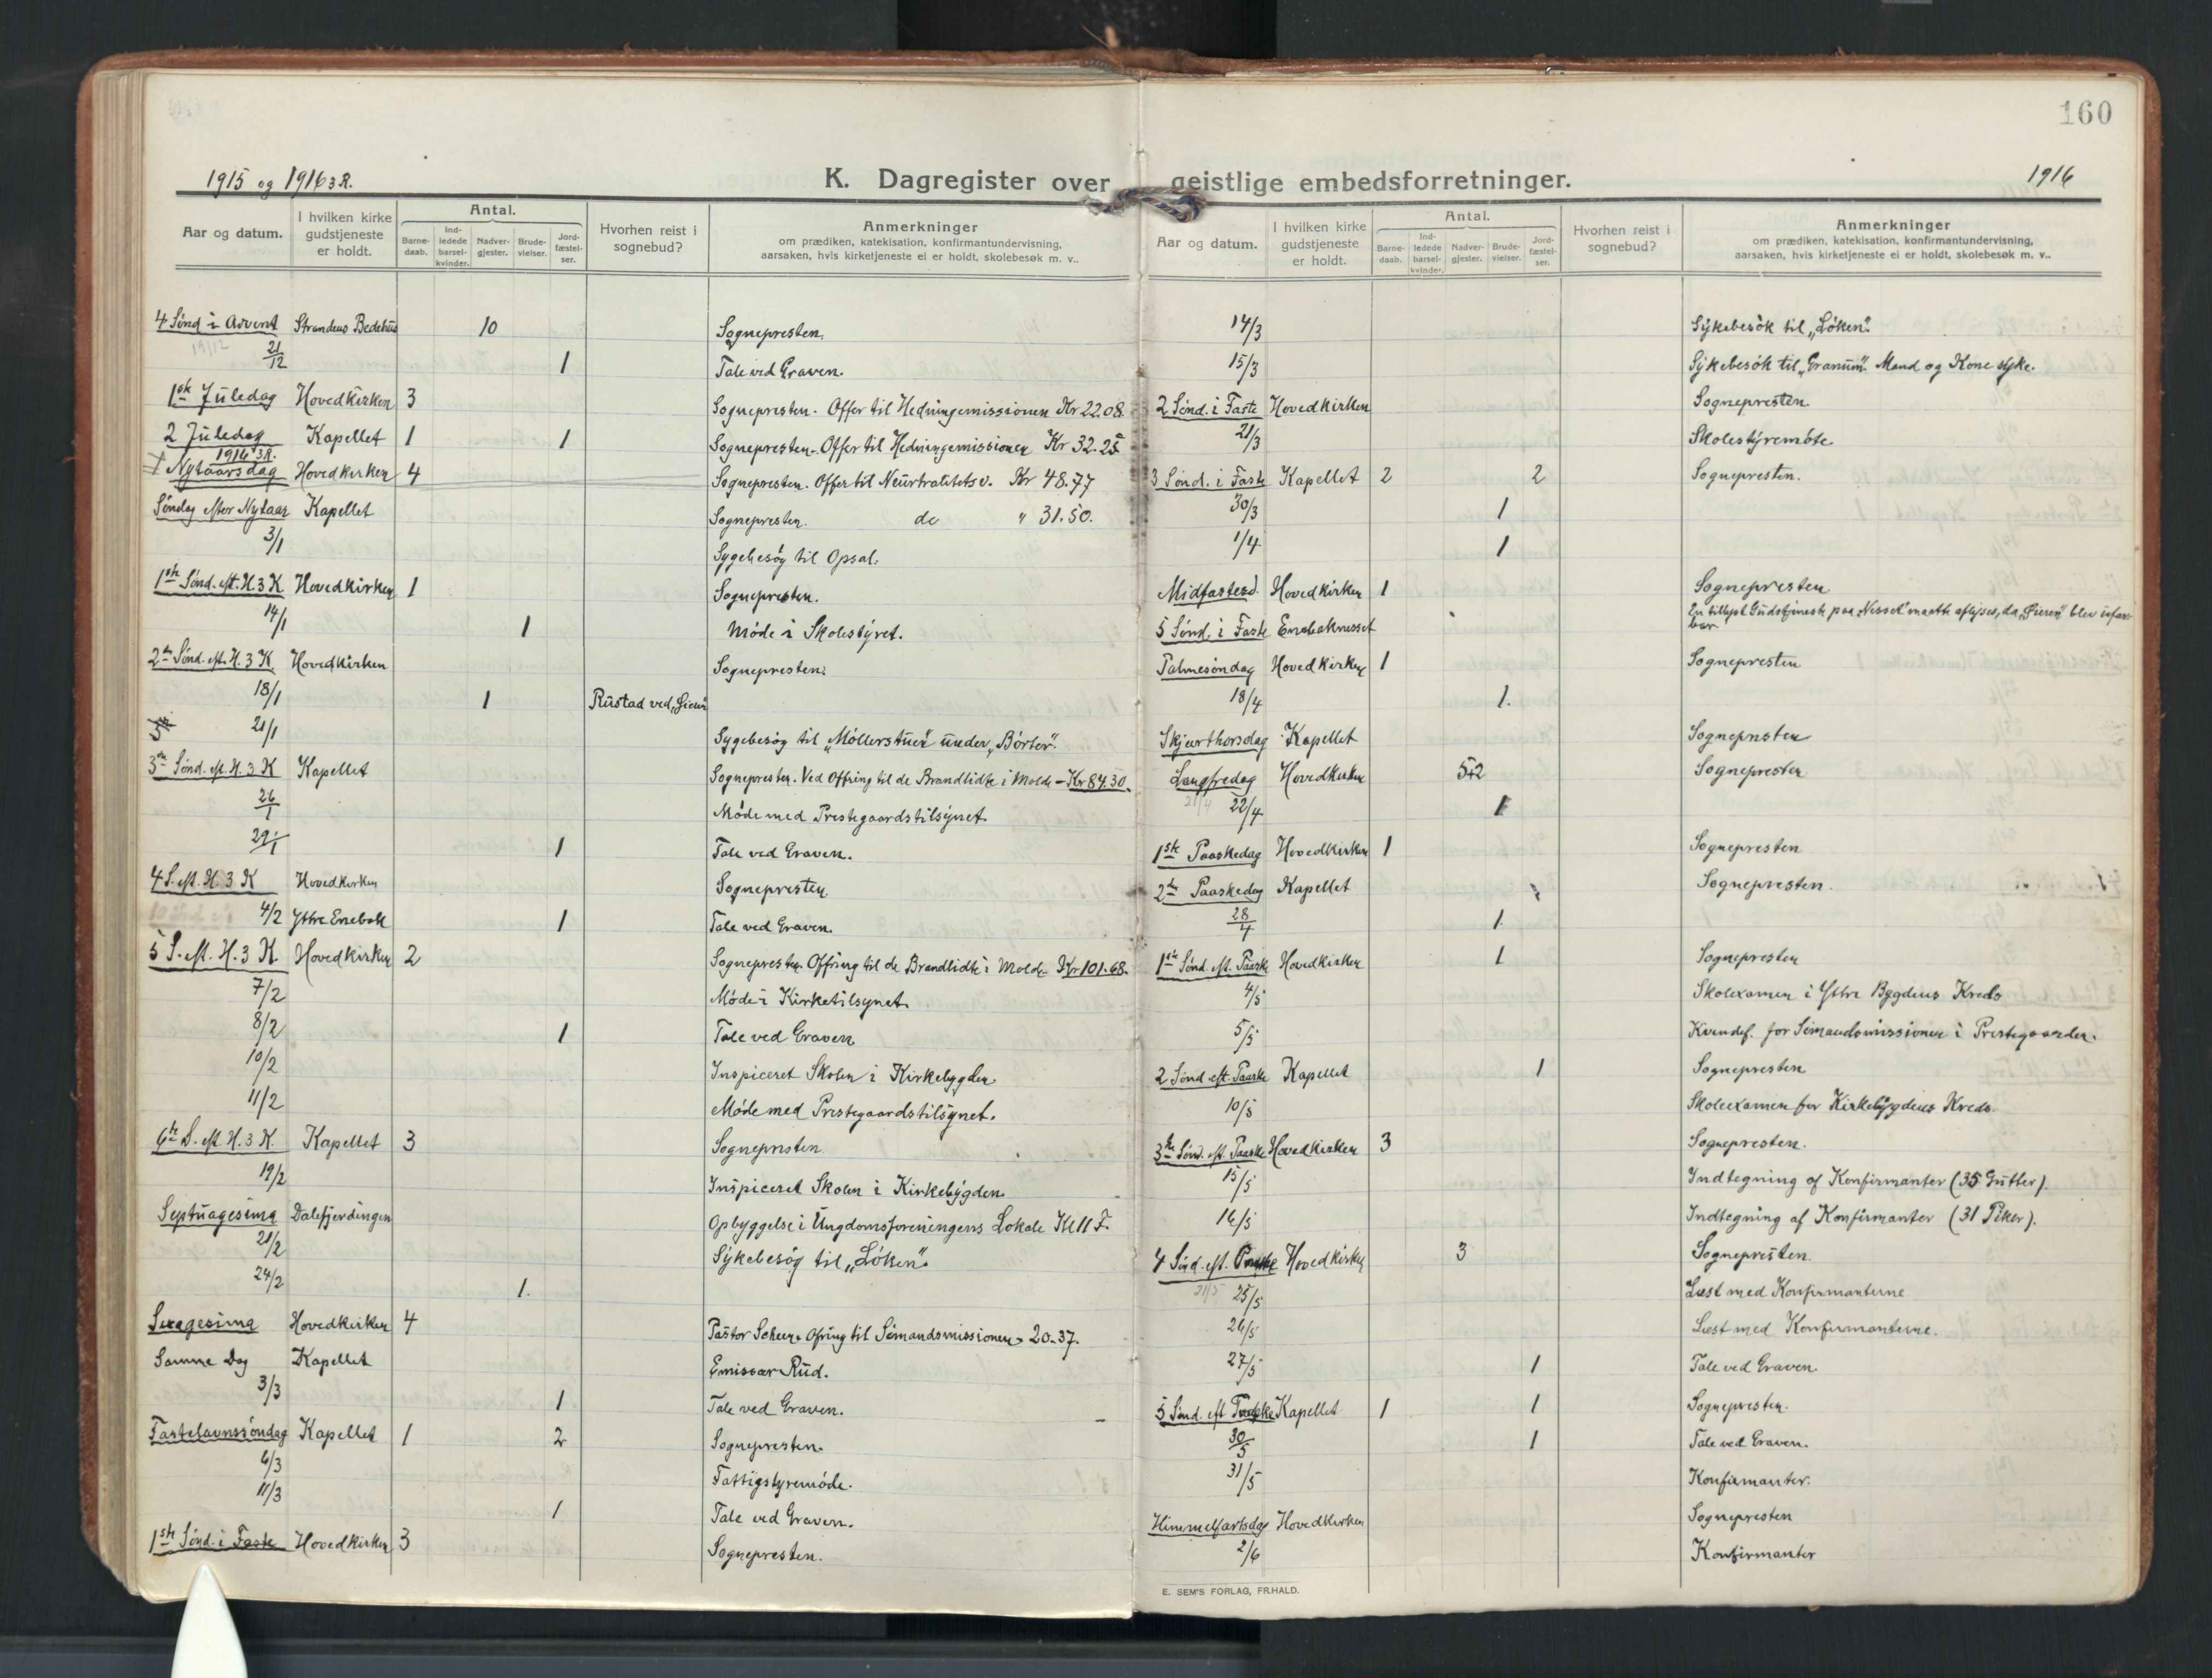 160
1915 og 1916 3R.
K. Dagregister over geistlige embedsforretninger.
1916
Aar og datum. I hvilken kirke gudstjeneste er holdt. Antal. Barnedaab. Indledede barselkvinder. Nadvergjester. Brudevielser. Jordfæstelser. Hvorhen reist i sognebud? Anmerkninger om prædiken, katekisation, konfirmantundervisning, aarsaken, hvis kirketjeneste ei er holdt, skolebesøk m. v..
4 Sönd i Advent Strandens Bedehus 10 Sognepresten.
19/12
21/12 1 Tale ved Graven.
1ste Juledag Hovedkirken 3 Sognepresten. Offer til Hedningemissionen Kr 22.08.
2 Juledag Kapellet 1 1 Sognepresten. Offer til Hedningemissionen Kr 32.25
1916 3R.
Nytaarsdag Hovedkirken 4 Sognepresten. Offer til Neutralitetsv. Kr 48.77
Söndag efter Nytaar Kapellet Sognepresten. do " 31.50.
3/1 Sygebesög til Opsal.
1ste Sönd. eft. H. 3 K. Hovedkirken 1 Sognepresten.
14/1 1 Möde i Skolestyret.
2den Sönd. eft. H. 3 K. Hovedkirken Sognepresten.
18/1 1 Rustad ved
21/1 Sygebesög til „Möllerstuen" under „Börter".
3die Sönd. eft. H. 3 K Kapellet Sognepresten. Ved Offring til de Brandlidte i Molde – Kr 84.30.
26/1 Möde med Prestegaardstilsynet.
29/1 1 Tale ved Graven.
4 S. eft. H. 3 K Hovedkirken Sognepresten.
4/2 Ytre Enebak 1 Tale ved Graven.
5 S. eft. H. 3 K. Hovedkirken 2 Sognepresten. Offring til de Brandlidte i Molde Kr 101.68.
7/2 Möde i Kirketilsynet.
8/2 1 Tale ved Graven
10/2 Inspiceret Skolen i Kirkebygden.
11/2 Möde med Prestegaardstilsynet.
6te S. eft. H. 3 K. Kapellet 3 Sognepresten
19/2 Inspiceret Skolen i Kirkebygden.
Septuagesima Dalefjerdingen Opbyggelse i Ungdomsforeningens Lokale Kl 11 F.
21/2 Sykebesög til „Löken".
24/2 1.
Sexagesima Hovedkirken 4 Pastor Scheen. Ofring til Sömandsmissionen 20.37.
Samme Dag Kapellet Emissær Rud.
3/3 1 Tale ved Graven.
Fastelavnssöndag Kapellet 1 2 Sognepresten.
6/3 Fattigstyremöde.
11/3 1 Tale ved Graven.
1ste Sönd. i Faste Hovedkirken 3 Sognepresten.
Aar og datum. I hvilken kirke gudstjeneste er holdt. Antal. Barnedaab. Indledede barselkvinder. Nadvergjester. Brudevielser. Jordfæstelser. Hvorhen reist i sognebud? Anmerkninger om prædiken, katekisation, konfirmantundervisning, aarsaken, hvis kirketjeneste ei er holdt, skolebesøk m. v..
14/3 Sykebesök til „Löken".
15/3 Sykebesök til „Granum". Mand og Kone syke.
2 Sönd. i Faste Hovedkirken Sognepresten.
21/3 Skolestyremöte.
3 Sönd. i Faste Kapellet 2 2 Sognepresten.
30/3 1
1/4 1
Midfastesd. Hovedkirken 1 Sognepresten
5 Sönd. i Faste Enebaknesset En tillyst Gudstjeneste paa „Nesset" maatte aflyses, da „Öieren" blev ufarbar
Palmesöndag Hovedkirken 1 Sognepresten
18/4 1.
Skjærthorsdag Kapellet Sognepresten
Langfredag Hovedkirken 52 Sognepresten
21/4 22/4 1
1ste Paaskedag Hovedkirken 1 Sognepresten
2den Paaskedag Kapellet Sognepresten.
28/4 1.
1ste Sönd. eft. Paaske Hovedkirken 1 Sognepresten
4/5 Skolexamen i Ytre Bygdens Kreds
5/5 Kvindef. for Sömandsmissionen i Prestegaarden.
2 Sönd. eft. Paaske Kapellet 1 Sognepresten
10/5 Skolexamen for Kirkebygdens Kreds.
3die Sönd. eft. Paaske Hovedkirken 3 Sognepresten.
15/5 Indtegning af Konfirmanter (35 Gutter).
16/5 Indtegning af Konfirmanter (31 Piker).
4 Sönd. eft. Paaske Hovedkirken 3 Sognepresten.
21/5 25/5 Læst med Konfirmanterne
26/5 Læst med Konfirmanterne.
27/5 1 Tale ved Graven.
5 Sönd. eft Paaske Kapellet 1 1 Sognepresten.
30/5 1 Tale ved Graven.
31/5 Konfirmanter.
Himmelfartsdag Hovedkirken Sognepresten
2/6 Konfirmanter
E. SEM'S FORLAG, FR.HALD.